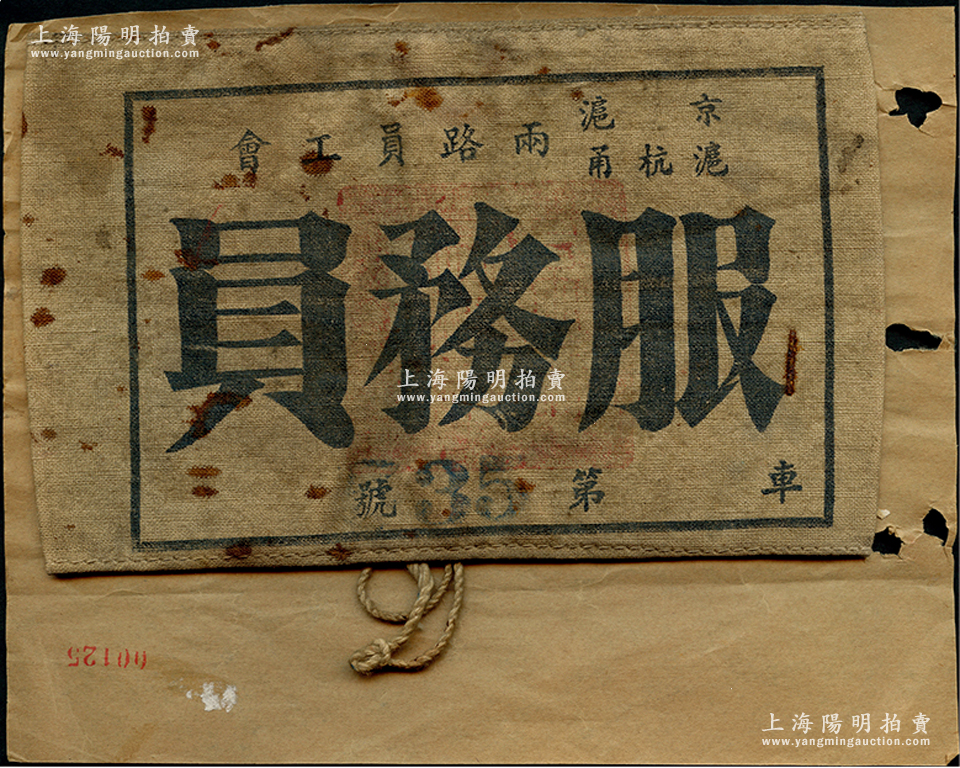 上海陽明拍賣
www.yangmingauction.com
京滬
滬杭甬
兩路員工會
服務員
車 第 35 號
上海陽明拍賣
www.yangmingauction.com
00125
上海陽明拍賣
www.yangmingauction.com